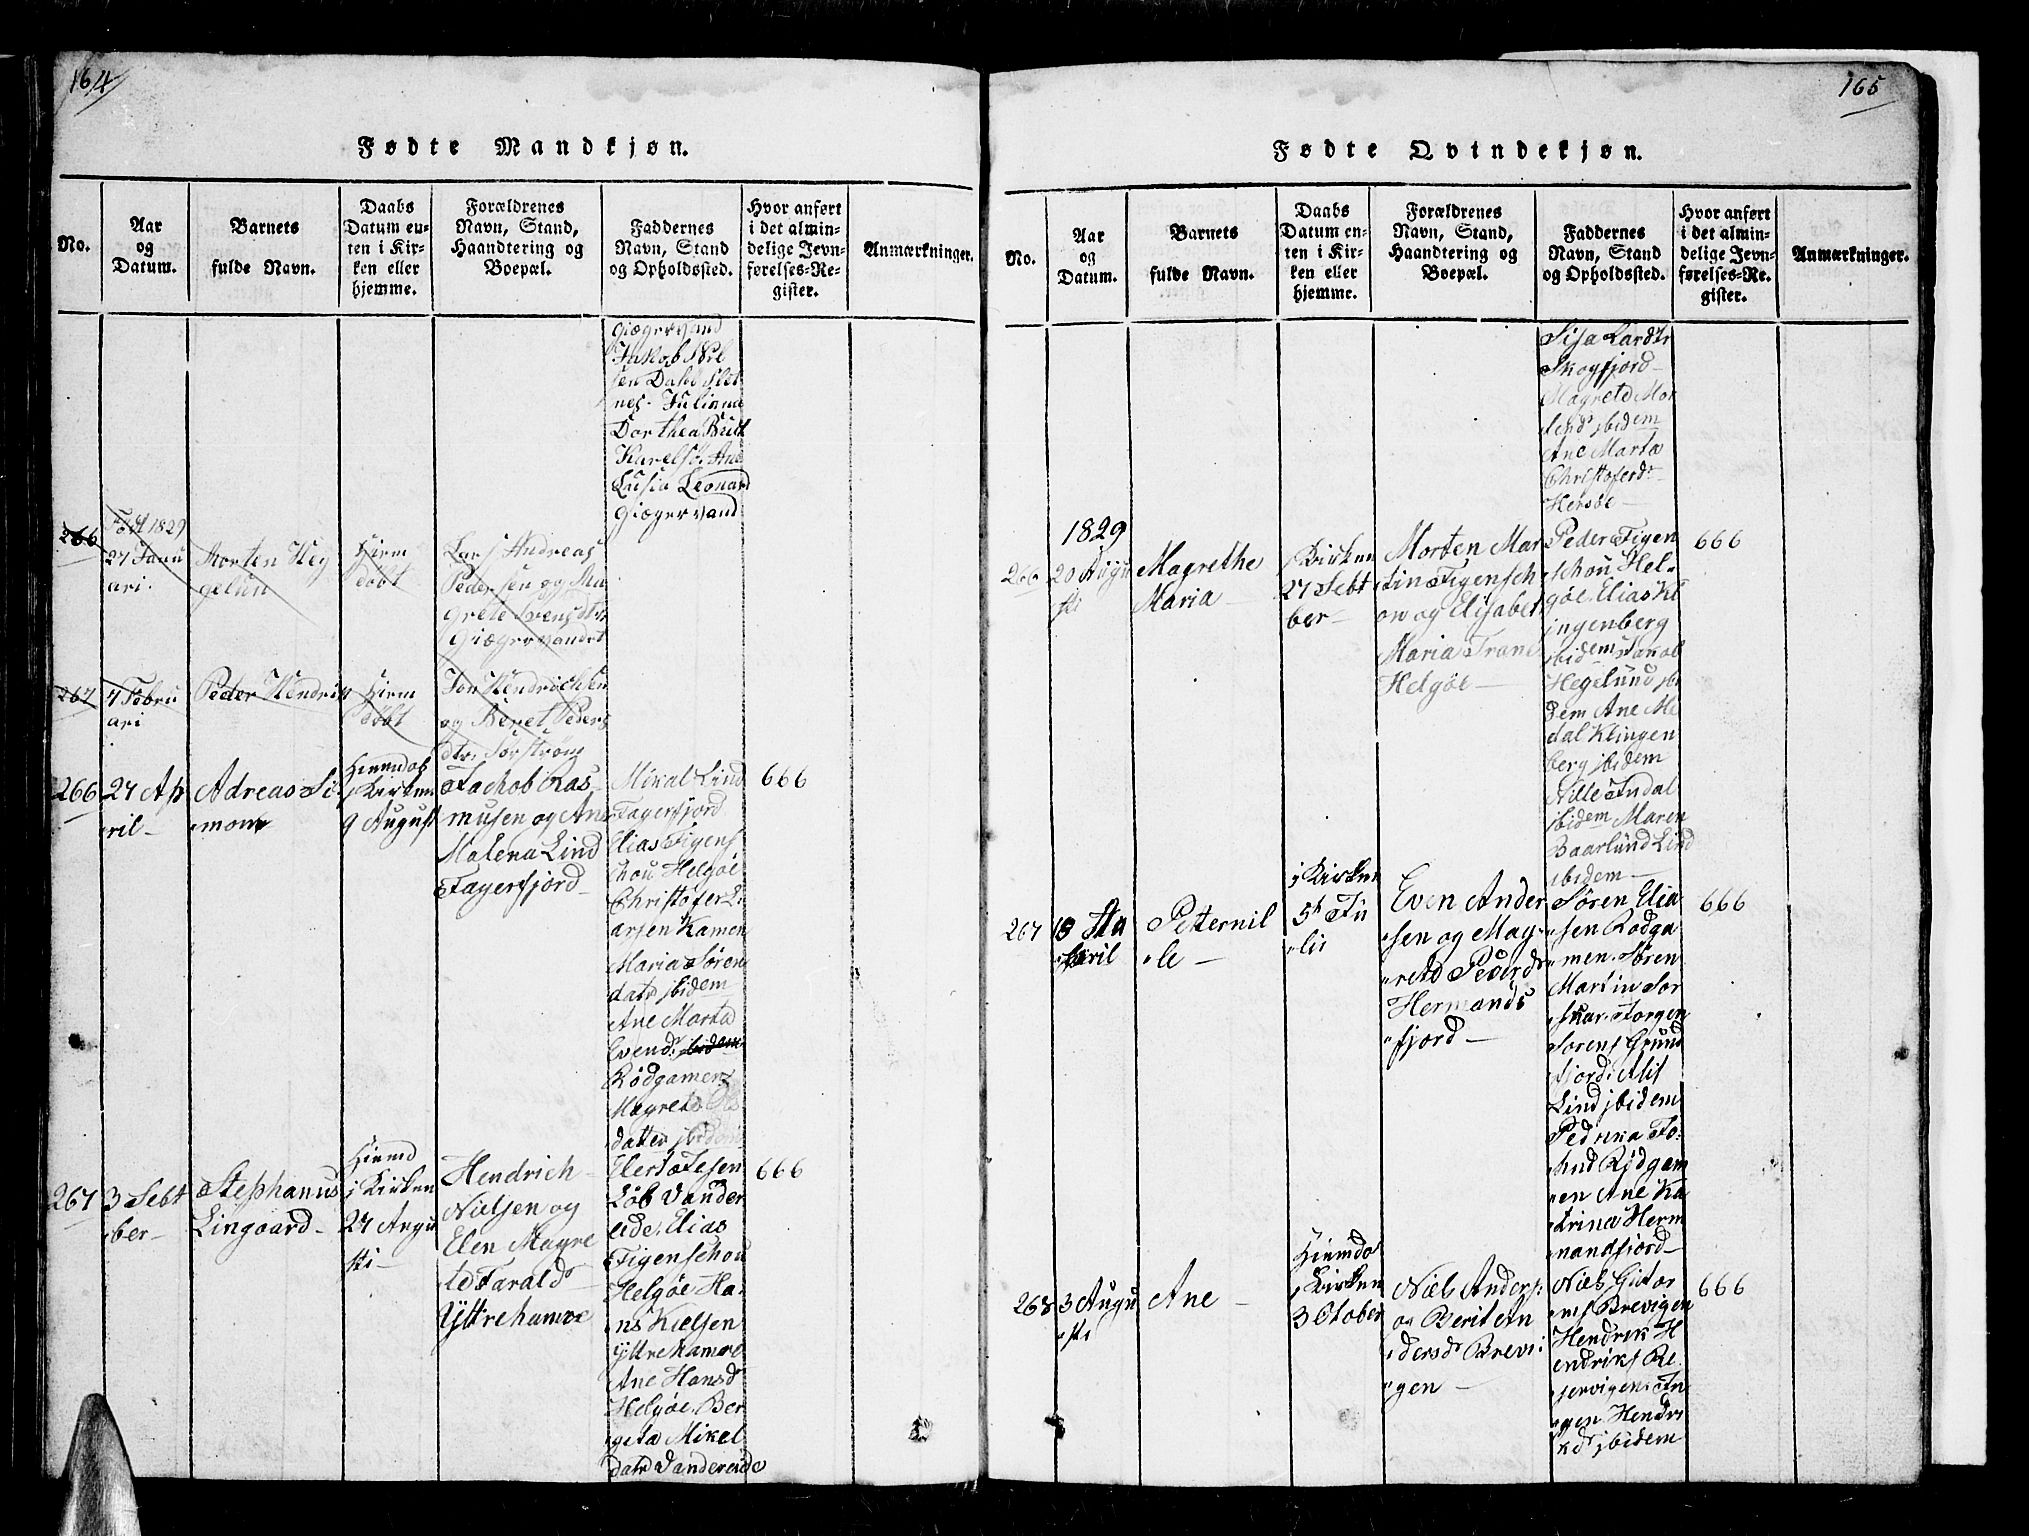 164
Fødte Mandkjøn.
No.
Aar
og
Datum.
Barnets
fulde Navn.
Daabs
Datum en-
ten i Kir-
ken eller
hjemme.
Forældrenes
Navn, Stand,
Haandtering og
Boepæl.
Faddernes
Navn, Stand
og Opholdssted.
Hvor anført
i det almin-
delige Jevn-
førelses-Re-
gister.
Anmærkninger.
Giøgervand
Jakob Niel
sen Dahl Slet
nes. Julianna
Dorthea Buck
Karelsø. Ane
Luisia Leonard
Giøgervand
266
Født 1829
27 Janu
ari.
Morten Heg
gelun
Hiem
døbt
Lars Andreas
Pedersen og Ma
grete Svensdtr
Giøgervandet
267
4 Febru
ari
Peder Hendrik
Hiem
døbt
Jon Hendrichsen
og Beret Peders
dtr. Sørstrøm
266
27 Ap
ril
Adreas Si-
mon
Hiemdøb
j Kirken
9 August
Jachob Ras
musen og Ane
Malena Lind
Fagerfjord
Mikal Lind
Fagerfjord
Elias Figens
chou Helgøe
Christofer L
arsen Kamen
Maria Søren
datr jbidem
Ane Marta
Evend. jbidem
Rødgamen
Magrete
datter jbidem
666
267
3 Sebt
ber
Stephanus
Lingaard
Hiemd
j Kirken
27 Augu
sti
Hendrich
Nielsen og
Elen Magre
te Faralds
Yttrehamre
Elert Jesen
Løb Vander
eide. Elias
Figenschou
Helgøe Ha
ns Kielsen
Yttrehamre
Ane Hansd
Helgøe. Ber
geta Mikel
datr Vandereide
666
165
Fødte Qvindekjøn.
No.
Aar
og
Datum.
Barnets
fulde Navn.
Daabs
Datum en-
ten i Kir-
ken eller
hjemme.
Forældrenes
Navn, Stand,
Haandtering og
Boepæl.
Faddernes
Navn, Stand
og Opholdssted.
Hvor anført
i det almin-
delige Jevn-
førelses-Re-
gister.
Anmærkninger.
Sisa Lardtr
Skogfjord
Magrete Mor
tends jbidem
Ane Marta
Christoferdr
Hersøe
266
1829
20 Augu
sti
Magrethe
Maria
j Kirken
27 Sebt
ber
Morten Mar
tin Figensch
ow og Elisabet
Maria Trane
Helgøe
Peder Figen
schou Hel-
gøe. Elias Kl
ingenberg
jbidem Jakob
Hegelund jbi
dem Ane Me
dal Klingen
berg jbidem
Nille Indal
jbidem Maren
Baarlund Lind
jbidem
666
267
Petternil
le
j Kirken
5te Ju
lis
Even Ander
sen og Mag
rete Pederdr
Hermands
fjord
Søren Elia
sen Rødga
men. Søren
Martin Sor
skar. Jorgen
Sorens Grund
fjord. Alis
Lind jbidem
Pedrika Jo
hnd Rødgam
en Ane Ka
trina Herm
nandfjord
666
268
3 Augu
sti
Ane
Hiemdø
j Kirken
3 Otober
Niels Anders:
og Berit An
dersdr Brevi
gen
Niels Gutor
ms Brevigen
Hendrik H
endriks Re
jervigen. In
gen Hendri
kdr jbidem
666